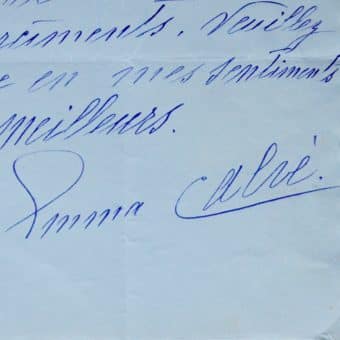 Veuillez
en mes sentiments
meilleurs.
Emma Calvé.